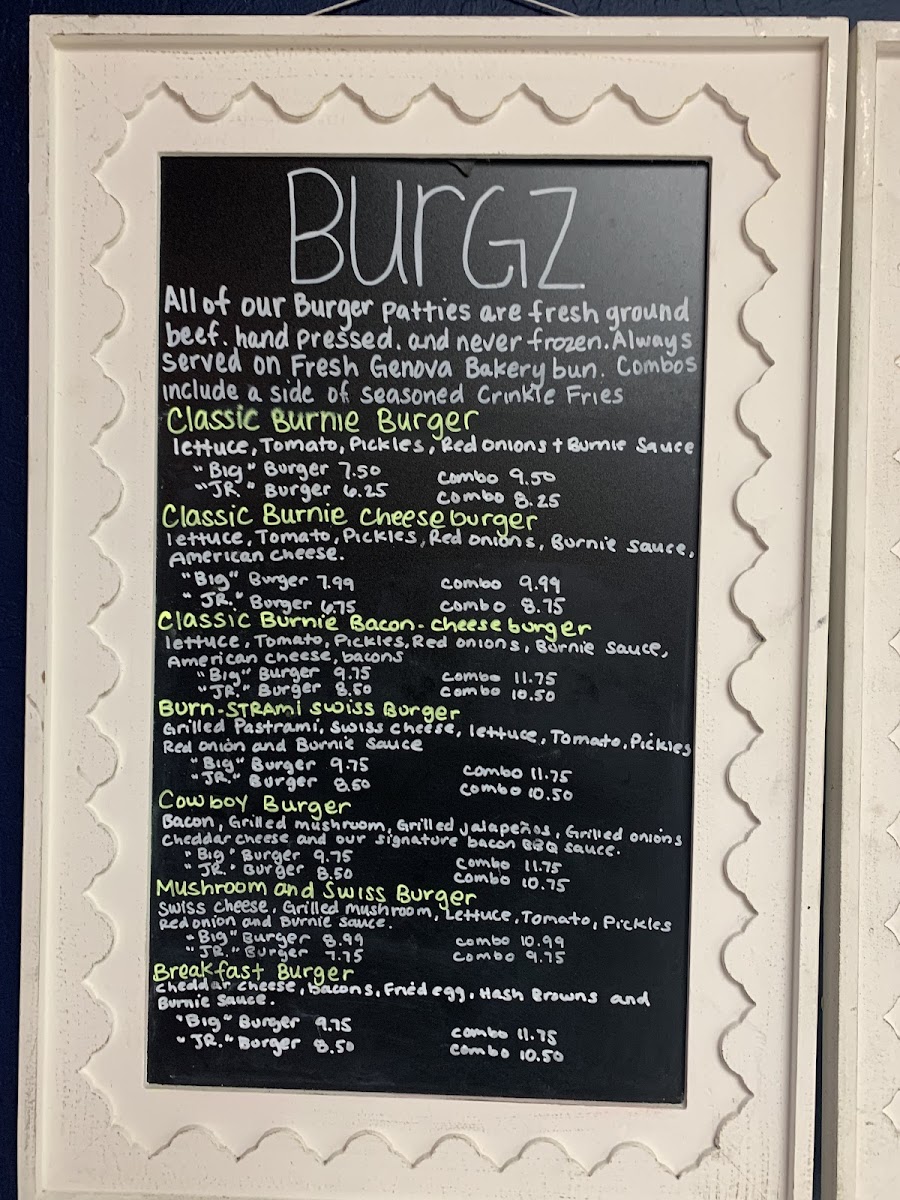 BurGZ
All of our Burger patties are fresh ground
beef. hand pressed. and never frozen. Always
served on Fresh Genova Bakery bun. Combos
include a side of seasoned Crinkle Fries
Classic Burnie Burger
lettuce, Tomato, Pickles, Red onions + Burnie Sauce
"Big" Burger 7.50 combo 9.50
"JR." Burger 6.25 combo 8.25
Classic Burnie Cheeseburger
lettuce, Tomato, Pickles, Red onions, Burnie sauce,
American cheese.
"Big" Burger 7.99 combo 9.99
"JR." Burger 6.75 combo 8.75
Classic Burnie Bacon-cheeseburger
lettuce, Tomato, Pickles, Red onions, Burnie sauce,
American cheese, bacons
"Big" Burger 9.75 combo 11.75
"JR." Burger 8.50 combo 10.50
Burn-STRAMi swiss Burger
Grilled Pastrami, swiss cheese, lettuce, Tomato, Pickles
Red onion and Burnie sauce
"Big" Burger 9.75 combo 11.75
"JR." Burger 8.50 combo 10.50
Cowboy Burger
Bacon, Grilled mushroom, Grilled jalapeños, Grilled onions
cheddar cheese and our signature bacon BBQ sauce.
"Big" Burger 9.75 combo 11.75
"JR." Burger 8.50 combo 10.75
Mushroom and Swiss Burger
Swiss cheese, Grilled mushroom, Lettuce, Tomato, Pickles
Red onion and Burnie sauce.
"Big" Burger 8.99 combo 10.99
"JR." Burger 7.75 combo 9.75
Breakfast Burger
cheddar cheese, bacons, Fried egg, Hash Browns and
Burnie sauce.
"Big" Burger 9.75 combo 11.75
"JR." Burger 8.50 combo 10.50